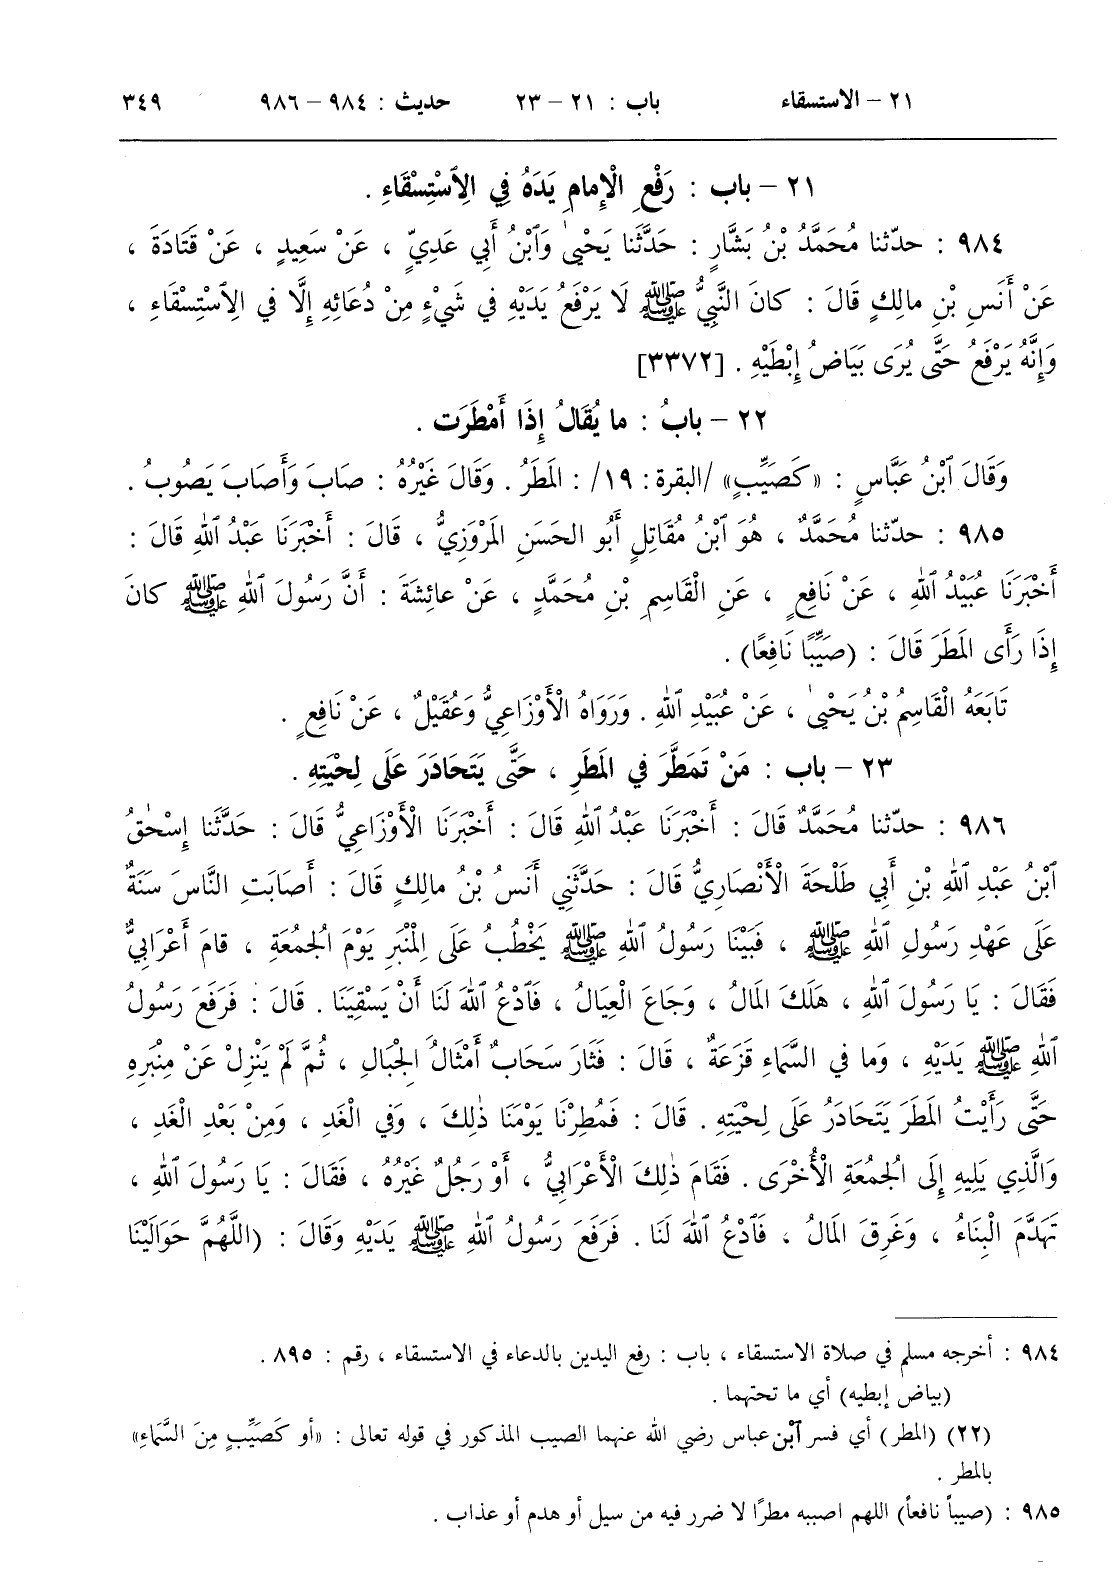 ٢١ – الاستسقاء باب : ٢١ – ٢٣ حديث : ٩٨٤ – ٩٨٦ ٣٤٩
٢١ – باب : رَفْعِ الْإِمامِ يَدَهُ فِي الِٱسْتِسْقَاءِ .
٩٨٤ : حدّثنا مُحَمَّدُ بْنُ بَشَّارٍ : حَدَّثَنا يَحْيىٰ وَٱبْنُ أَبِي عَدِيٍّ ، عَنْ سَعِيدٍ ، عَنْ قَتَادَةَ ،
عَنْ أَنَسِ بْنِ مالِكٍ قَالَ : كانَ النَّبِيُّ ﷺ لَا يَرْفَعُ يَدَيْهِ في شَيْءٍ مِنْ دُعَائِهِ إِلَّا في الِٱسْتِسْقَاءِ ،
وَإِنَّهُ يَرْفَعُ حَتَّى يُرَى بَيَاضُ إِبْطَيْهِ . [٣٣٧٢]
٢٢ – بابُ : ما يُقَالُ إِذَا أَمْطَرَت .
وَقَالَ ٱبْنُ عَبَّاسٍ : «كَصَيِّبٍ» /البقرة : ١٩/ : المَطَرُ . وَقَالَ غَيْرُهُ : صَابَ وَأَصَابَ يَصُوبُ .
٩٨٥ : حدّثنا مُحَمَّدٌ ، هُوَ ٱبْنُ مُقَاتِلٍ أَبُو الحَسَنِ المَرْوَزِيُّ ، قَالَ : أَخْبَرَنَا عَبْدُ ٱللهِ قَالَ :
أَخْبَرَنَا عُبَيْدُ ٱللهِ ، عَنْ نَافِعٍ ، عَنِ الْقَاسِمِ بْنِ مُحَمَّدٍ ، عَنْ عائِشَةَ : أَنَّ رَسُولَ ٱللهِ ﷺ كانَ
إِذَا رَأَى المَطَرَ قَالَ : (صَيِّبًا نَافِعًا) .
تَابَعَهُ الْقَاسِمُ بْنُ يَحْيىٰ ، عَنْ عُبَيْدِ ٱللهِ . وَرَوَاهُ الْأَوْزَاعِيُّ وَعُقَيْلٌ ، عَنْ نَافِعٍ .
٢٣ – باب : مَنْ تَمَطَّرَ في المَطَرِ ، حَتَّى يَتَحَادَرَ عَلَى لِحْيَتِهِ .
٩٨٦ : حدّثنا مُحَمَّدٌ قَالَ : أَخْبَرَنَا عَبْدُ ٱللهِ قَالَ : أَخْبَرَنَا الْأَوْزَاعِيُّ قَالَ : حَدَّثَنا إِسْحٰقُ
ٱبْنُ عَبْدِ ٱللهِ بْنِ أَبِي طَلْحَةَ الْأَنْصَارِيُّ قَالَ : حَدَّثَنِي أَنَسُ بْنُ مالِكٍ قَالَ : أَصَابَتِ النَّاسَ سَنَةٌ
عَلَى عَهْدِ رَسُولِ ٱللهِ ﷺ ، فَبَيْنَا رَسُولُ ٱللهِ ﷺ يَخْطُبُ عَلَى الْمِنْبَرِ يَوْمَ الجُمُعَةِ ، قامَ أَعْرَابِيٌّ
فَقَالَ : يَا رَسُولَ ٱللهِ ، هَلَكَ المَالُ ، وَجَاعَ الْعِيَالُ ، فَٱدْعُ ٱللهَ لَنَا أَنْ يَسْقِيَنَا . قَالَ : فَرَفَعَ رَسُولُ
ٱللهِ ﷺ يَدَيْهِ ، وَما في السَّمَاءِ قَزَعَةٌ ، قَالَ : فَثَارَ سَحَابٌ أَمْثَالُ الْجِبَالِ ، ثُمَّ لَمْ يَنْزِلْ عَنْ مِنْبَرِهِ
حَتَّى رَأَيْتُ المَطَرَ يَتَحَادَرُ عَلَى لِحْيَتِهِ . قَالَ : فَمُطِرْنَا يَوْمَنَا ذٰلِكَ ، وَفِي الْغَدِ ، وَمِنْ بَعْدِ الْغَدِ ،
وَالَّذِي يَلِيهِ إِلَى الْجُمُعَةِ الْأُخْرَى . فَقَامَ ذٰلِكَ الْأَعْرَابِيُّ ، أَوْ رَجُلٌ غَيْرُهُ ، فَقَالَ : يَا رَسُولَ ٱللهِ ،
تَهَدَّمَ الْبِنَاءُ ، وَغَرِقَ المَالُ ، فَٱدْعُ ٱللهَ لَنَا . فَرَفَعَ رَسُولُ ٱللهِ ﷺ يَدَيْهِ وَقَالَ : (اللَّهُمَّ حَوَالَيْنَا
٩٨٤ : أخرجه مسلم في صلاة الاستسقاء ، باب : رفع اليدين بالدعاء في الاستسقاء ، رقم : ٨٩٥ .
(بياض إبطيه) أي ما تحتهما .
(٢٢) (المطر) أي فسر ٱبْن عباس رضي الله عنهما الصيب المذكور في قوله تعالى : «أو كَصَيِّبٍ مِنَ السَّمَاءِ»
بالمطر .
٩٨٥ : (صيباً نافعاً) اللهم اصببه مطرًا لا ضرر فيه من سيل أو هدم أو عذاب .